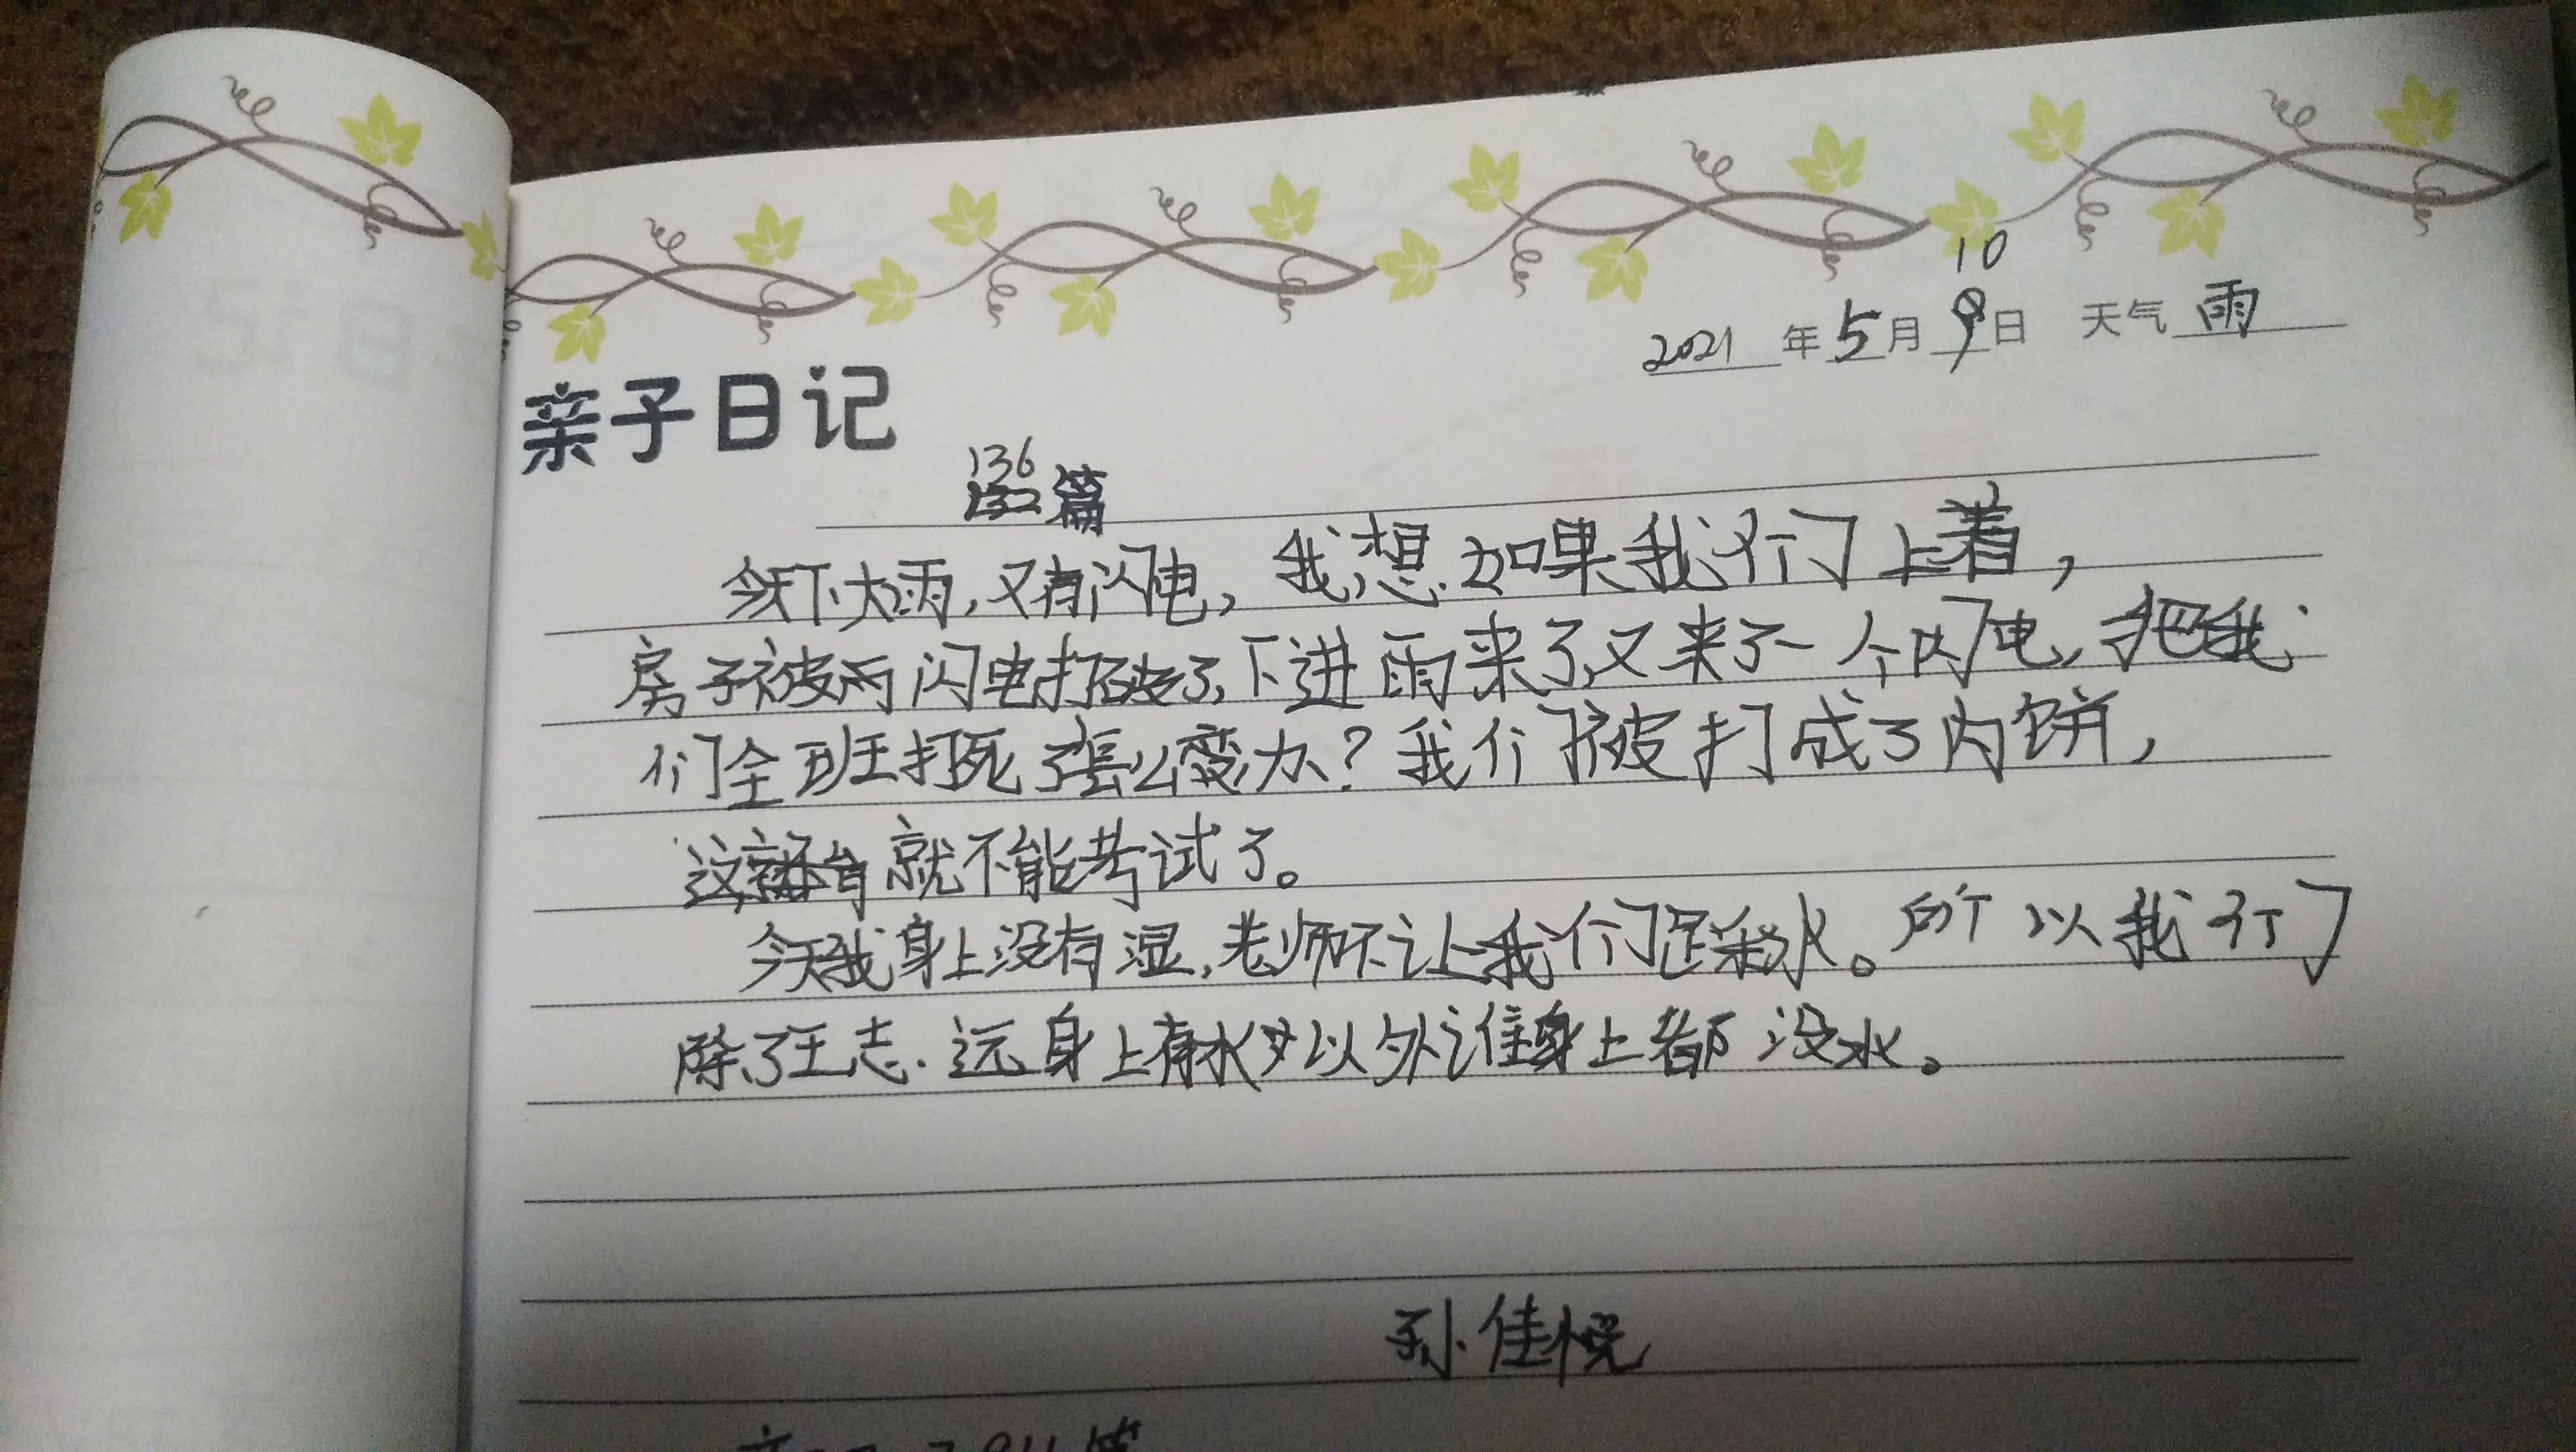 10
2021年5月9日 天气 雨
亲子日记
136
篇
今天下大雨,又有闪电,我想如果我们上着,
房子被雨闪电打破了,下进雨来了,又来了一个闪电,把我
们全班打死了怎么办?我们被打成了肉饼,
这就不能考试了。
今天我身上没有湿,老师不让我们踩水。所以我们
除了王志远身上有水以外谁身上都没水。
孙佳悦